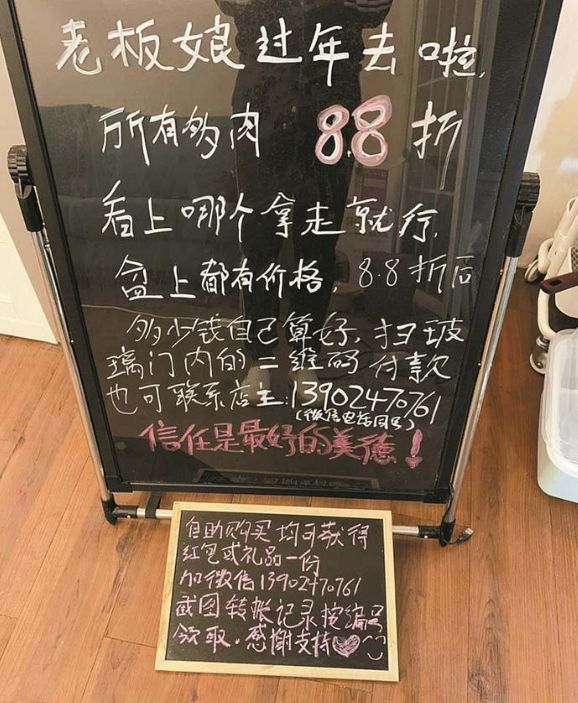 老板娘过年去啦,
所有多肉 8.8 折
看上哪个拿走就行,
盆上都有价格, 8.8折后
多少钱自己算好, 扫玻
璃门内的二维码付款
也可联系店主:13902470761
(微信电话同号)
信任是最好的美德!
自助购买均可获得
红包或礼品一份
加微信13902470761
截图转账记录按编号
领取. 感谢支持